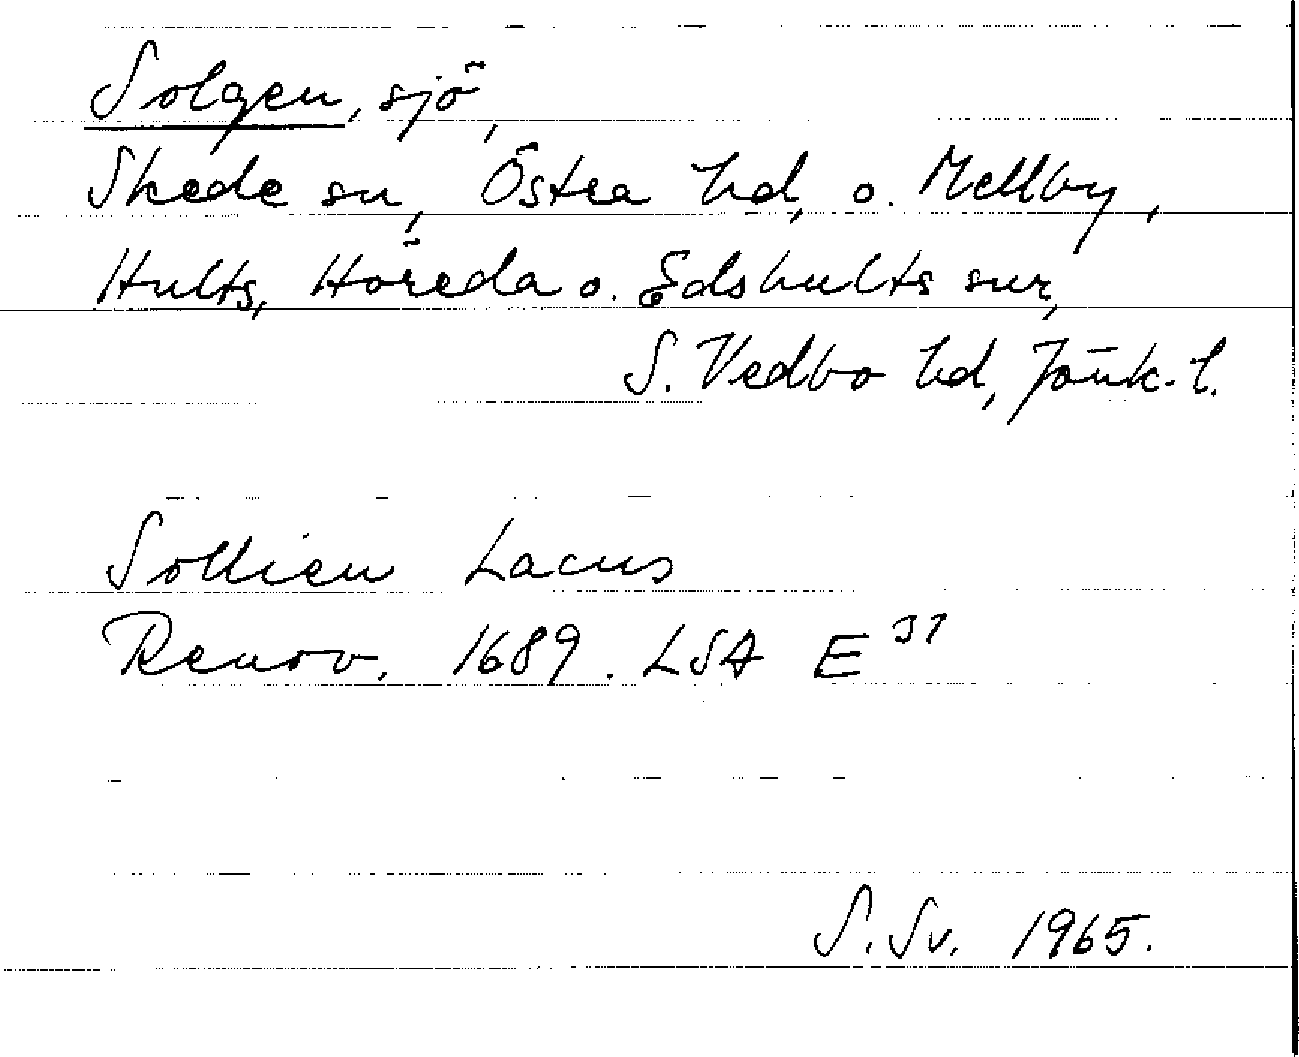 Solgen, sjö,
Skede sn, Östra hd, o. Mellby,
Hults, Höreda o. Edshults snr,
S. Vedbo hd, Jönk. l.
Sollien Lacus
Renov. 1689. LSA E 31
S. Sv. 1965.